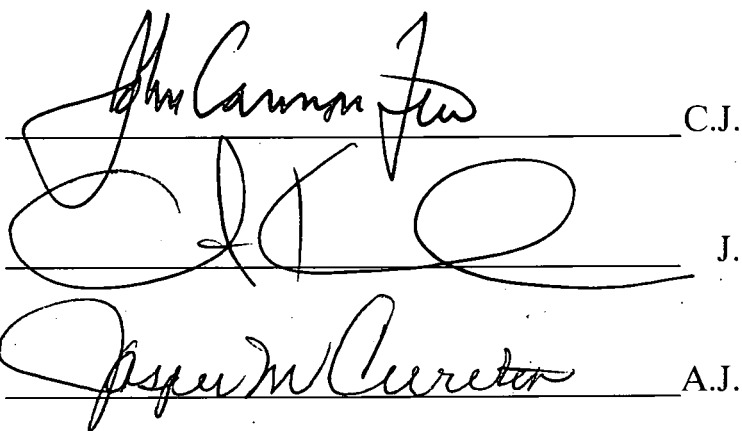 John Cannon Few C.J.
J.
Jasper M Cureton A.J.